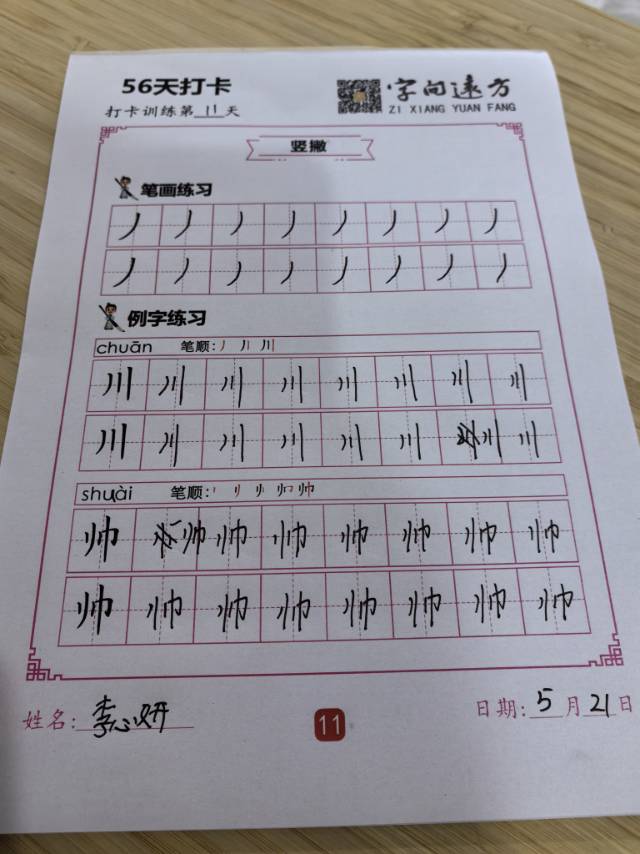 56天打卡
字向远方
打卡训练第11天
ZI XIANG YUAN FANG
竖撇
笔画练习
丿丿丿丿丿丿丿丿
丿丿丿丿丿丿丿丿
例字练习
chuān 笔顺:丿 丿丨 川
川川川川川川川川
川川川川川川川川
shuài 笔顺:
帅帅帅帅帅帅帅帅
帅帅帅帅帅帅帅帅
姓名:李心妍
11
日期:5月21日